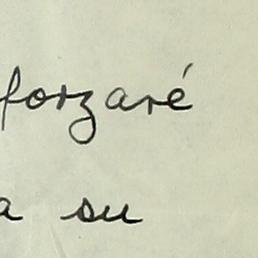 forzaré
a su